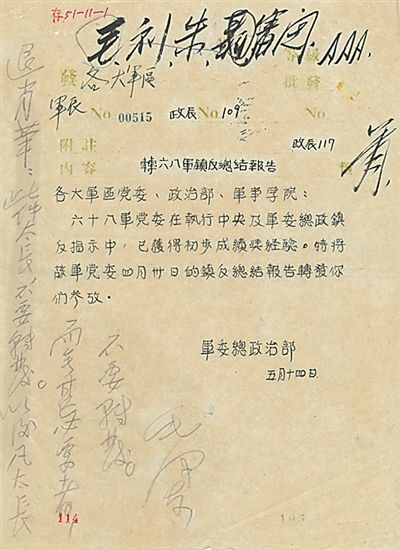 存51-11-1
毛、利、朱、審定 AAA.
發
批發
各大軍區
軍長 No 00515 政長 No 109 No
附註
政長117
內容
轉六八軍鎮反總結報告
各大軍區党委、政治部、軍事学院：
六十八軍党委在執行中央及軍委總政鎮
反指示中，已獲得初步成績與經驗。特將
該軍党委四月廿日的鎮反總結報告轉發你
們参攷。
軍委總政治部
五月十四日
退肖華：此件太長不要轉發。以後凡太長
而無甚必要者
不要轉發。
毛澤東
114
195